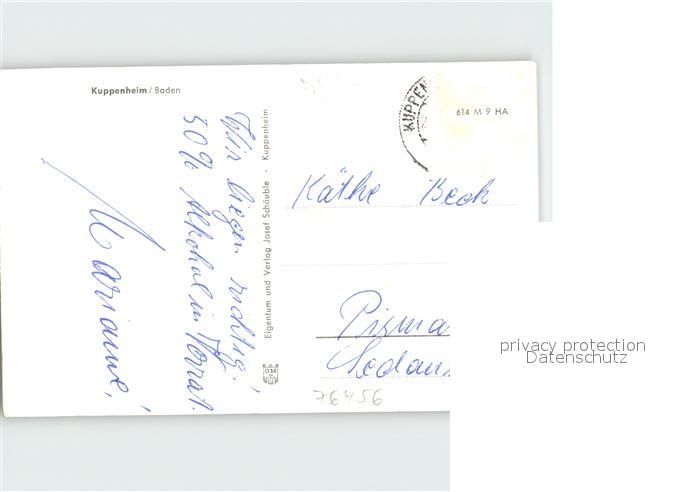 Kuppenheim/Baden
Wir liegen richtig!
50% Alkohol in Vorrat.
Marianne!
Eigentum und Verlag Josef Schäuble · Kuppenheim
KUPPEN
614 M 9 HA
Käthe Beck
Pirma
Sedan
76456
privacy protection
Datenschutz